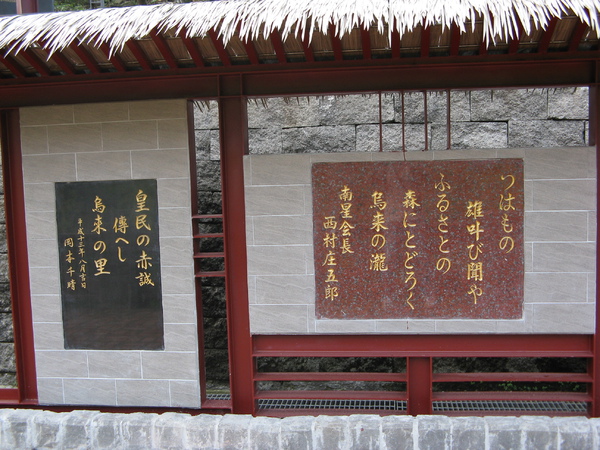 つはもの
雄叶び聞や
ふるさとの
森にとどろく
烏来の瀧
南星会長
西村庄五郎
皇民の赤誠
傳へし
烏来の里
平成十三年八月吉日
岡本千晴